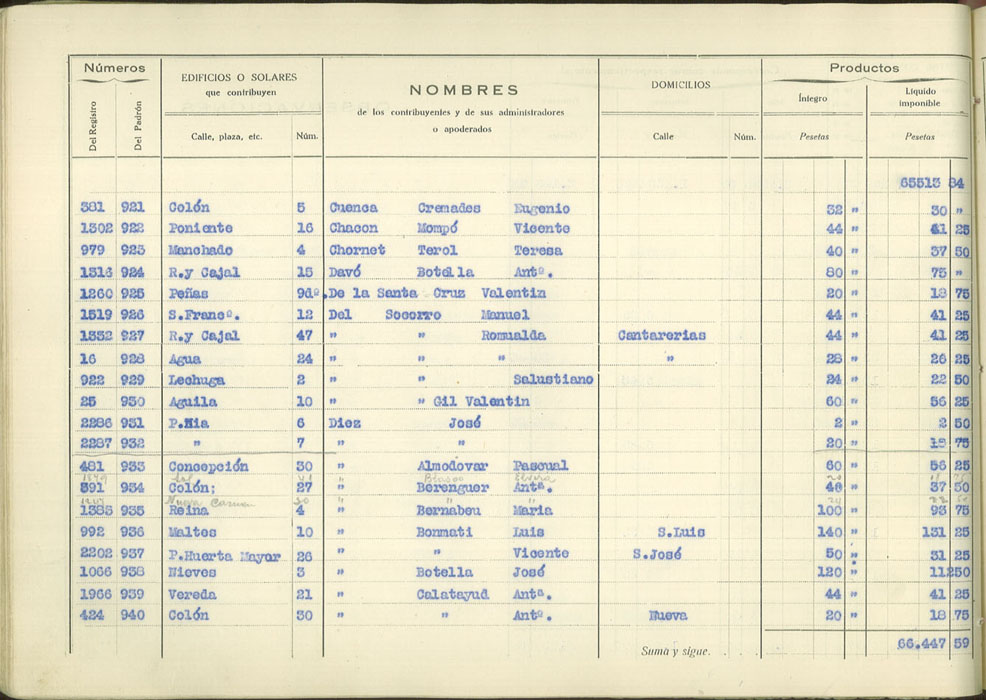 Números
EDIFICIOS O SOLARES
que contribuyen
NOMBRES
de los contribuyentes y de sus administradores
o apoderados
DOMICILIOS
Productos
Íntegro
Líquido
imponible
Del Registro
Del Padrón
Calle, plaza, etc.
Núm.
Calle
Núm.
Pesetas
Pesetas
65513 84
381 921 Colón 5 Cuenca Cremades Eugenio 32 " 30 "
1302 922 Poniente 16 Chacon Mompó Vicente 44 " 41 25
979 923 Manchado 4 Chornet Terol Teresa 40 " 37 50
1316 924 R.y Cajal 15 Davó Botella Antº. 80 " 75 "
1260 925 Peñas 9dº. De la Santa Cruz Valentin 20 " 18 75
1519 926 S.Francº. 12 Del Socorro Manuel 44 " 41 25
1332 927 R.y Cajal 47 " " Romualda Cantarerias 44 " 41 25
16 928 Agua 24 " " " " 28 " 26 25
922 929 Lechuga 2 " " Salustiano 24 " 22 50
25 930 Aguila 10 " " Gil Valentin 60 " 56 25
2286 931 P.Nia 6 Diez José 2 " 2 50
2287 932 " 7 " " 20 " 18 75
481 933 Concepción 30 " Almodovar Pascual 60 " 56 25
391 934 Colón; 27 " Berenguer Antª. 40 " 37 50
Nueva Carmen
1383 935 Reina 4 " Bernabeu Maria 100 " 93 75
992 936 Maltes 10 " Bonmati Luis S.Luis 140 " 131 25
2202 937 P.Huerta Mayor 26 " " Vicente S.José 50 " 31 25
1066 938 Nieves 3 " Botella José 120 " 11250
1966 939 Vereda 21 " Calatayud Antª. 44 " 41 25
424 940 Colón 30 " " Antº. Nueva 20 " 18 75
Suma y sigue. 66.447 59